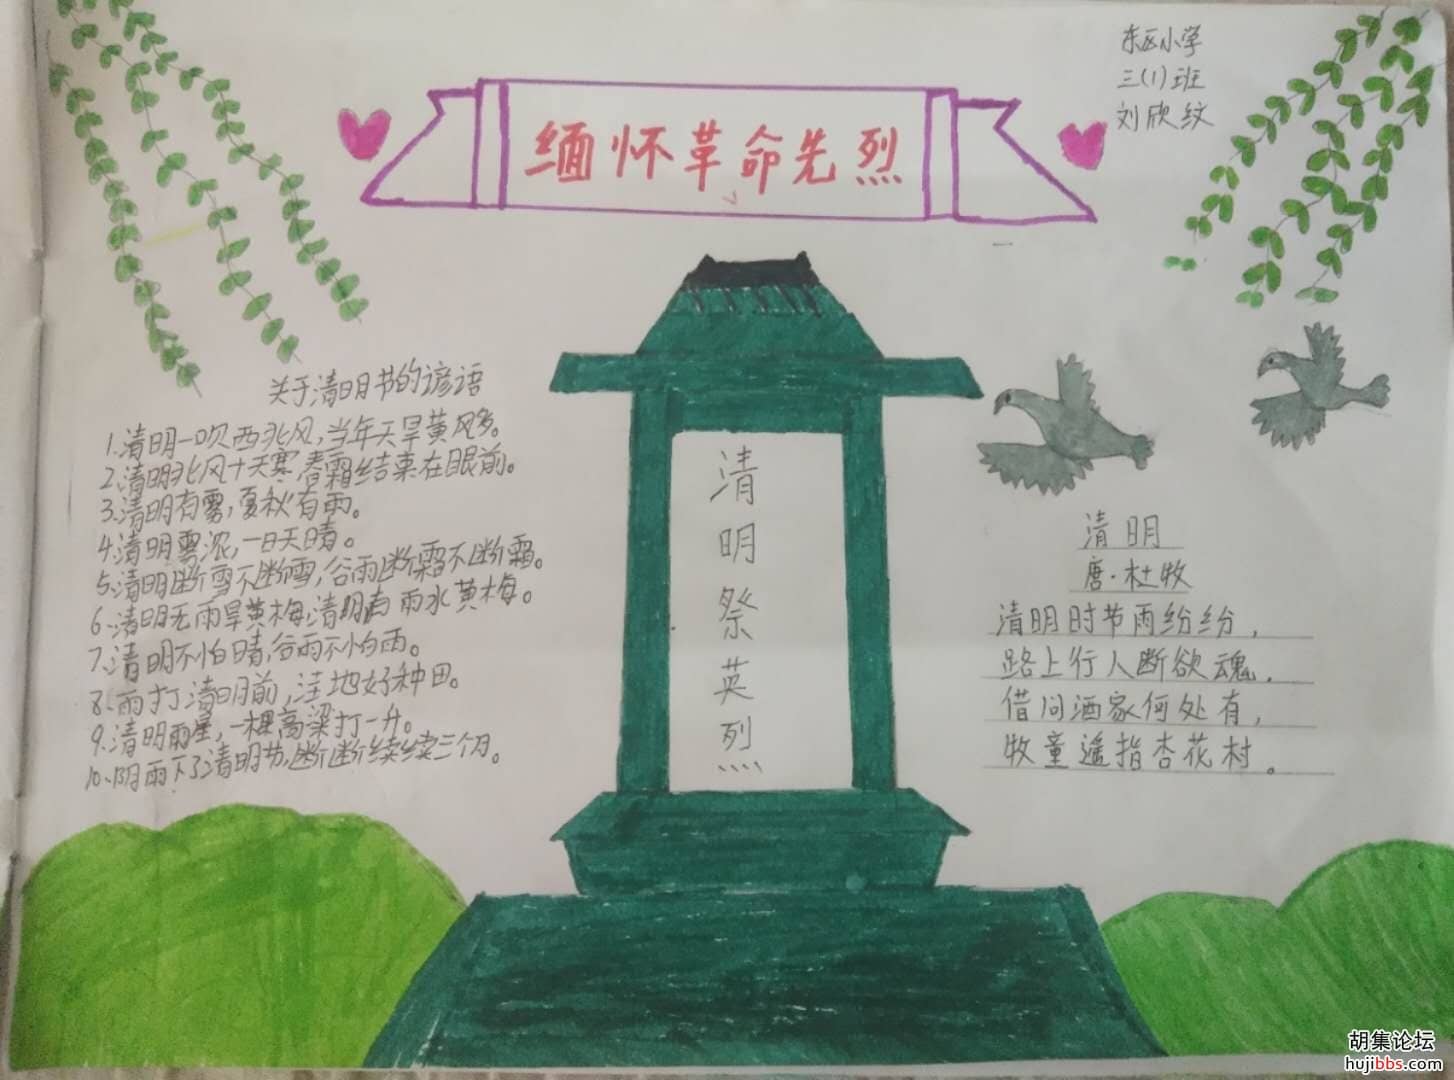 东区小学
三(1)班
刘欣纹
缅怀革命先烈
关于清明节的谚语
1.清明一吹西北风,当年天旱黄风多。
2.清明北风十天寒,春霜结束在眼前。
3.清明有雾,夏秋有雨。
4.清明雾浓,一日天晴。
5.清明断雪不断雪,谷雨断霜不断霜。
6.清明无雨旱黄梅,清明有雨水黄梅。
7.清明不怕晴,谷雨不怕雨。
8.雨打清明前,洼地好种田。
9.清明雨星,一棵高梁打一升。
10.阴雨下了清明节,断断续续三个月。
清明祭英烈
清明
唐·杜牧
清明时节雨纷纷,
路上行人断欲魂.
借问酒家何处有,
牧童遥指杏花村。
胡集论坛
hujibbs.com